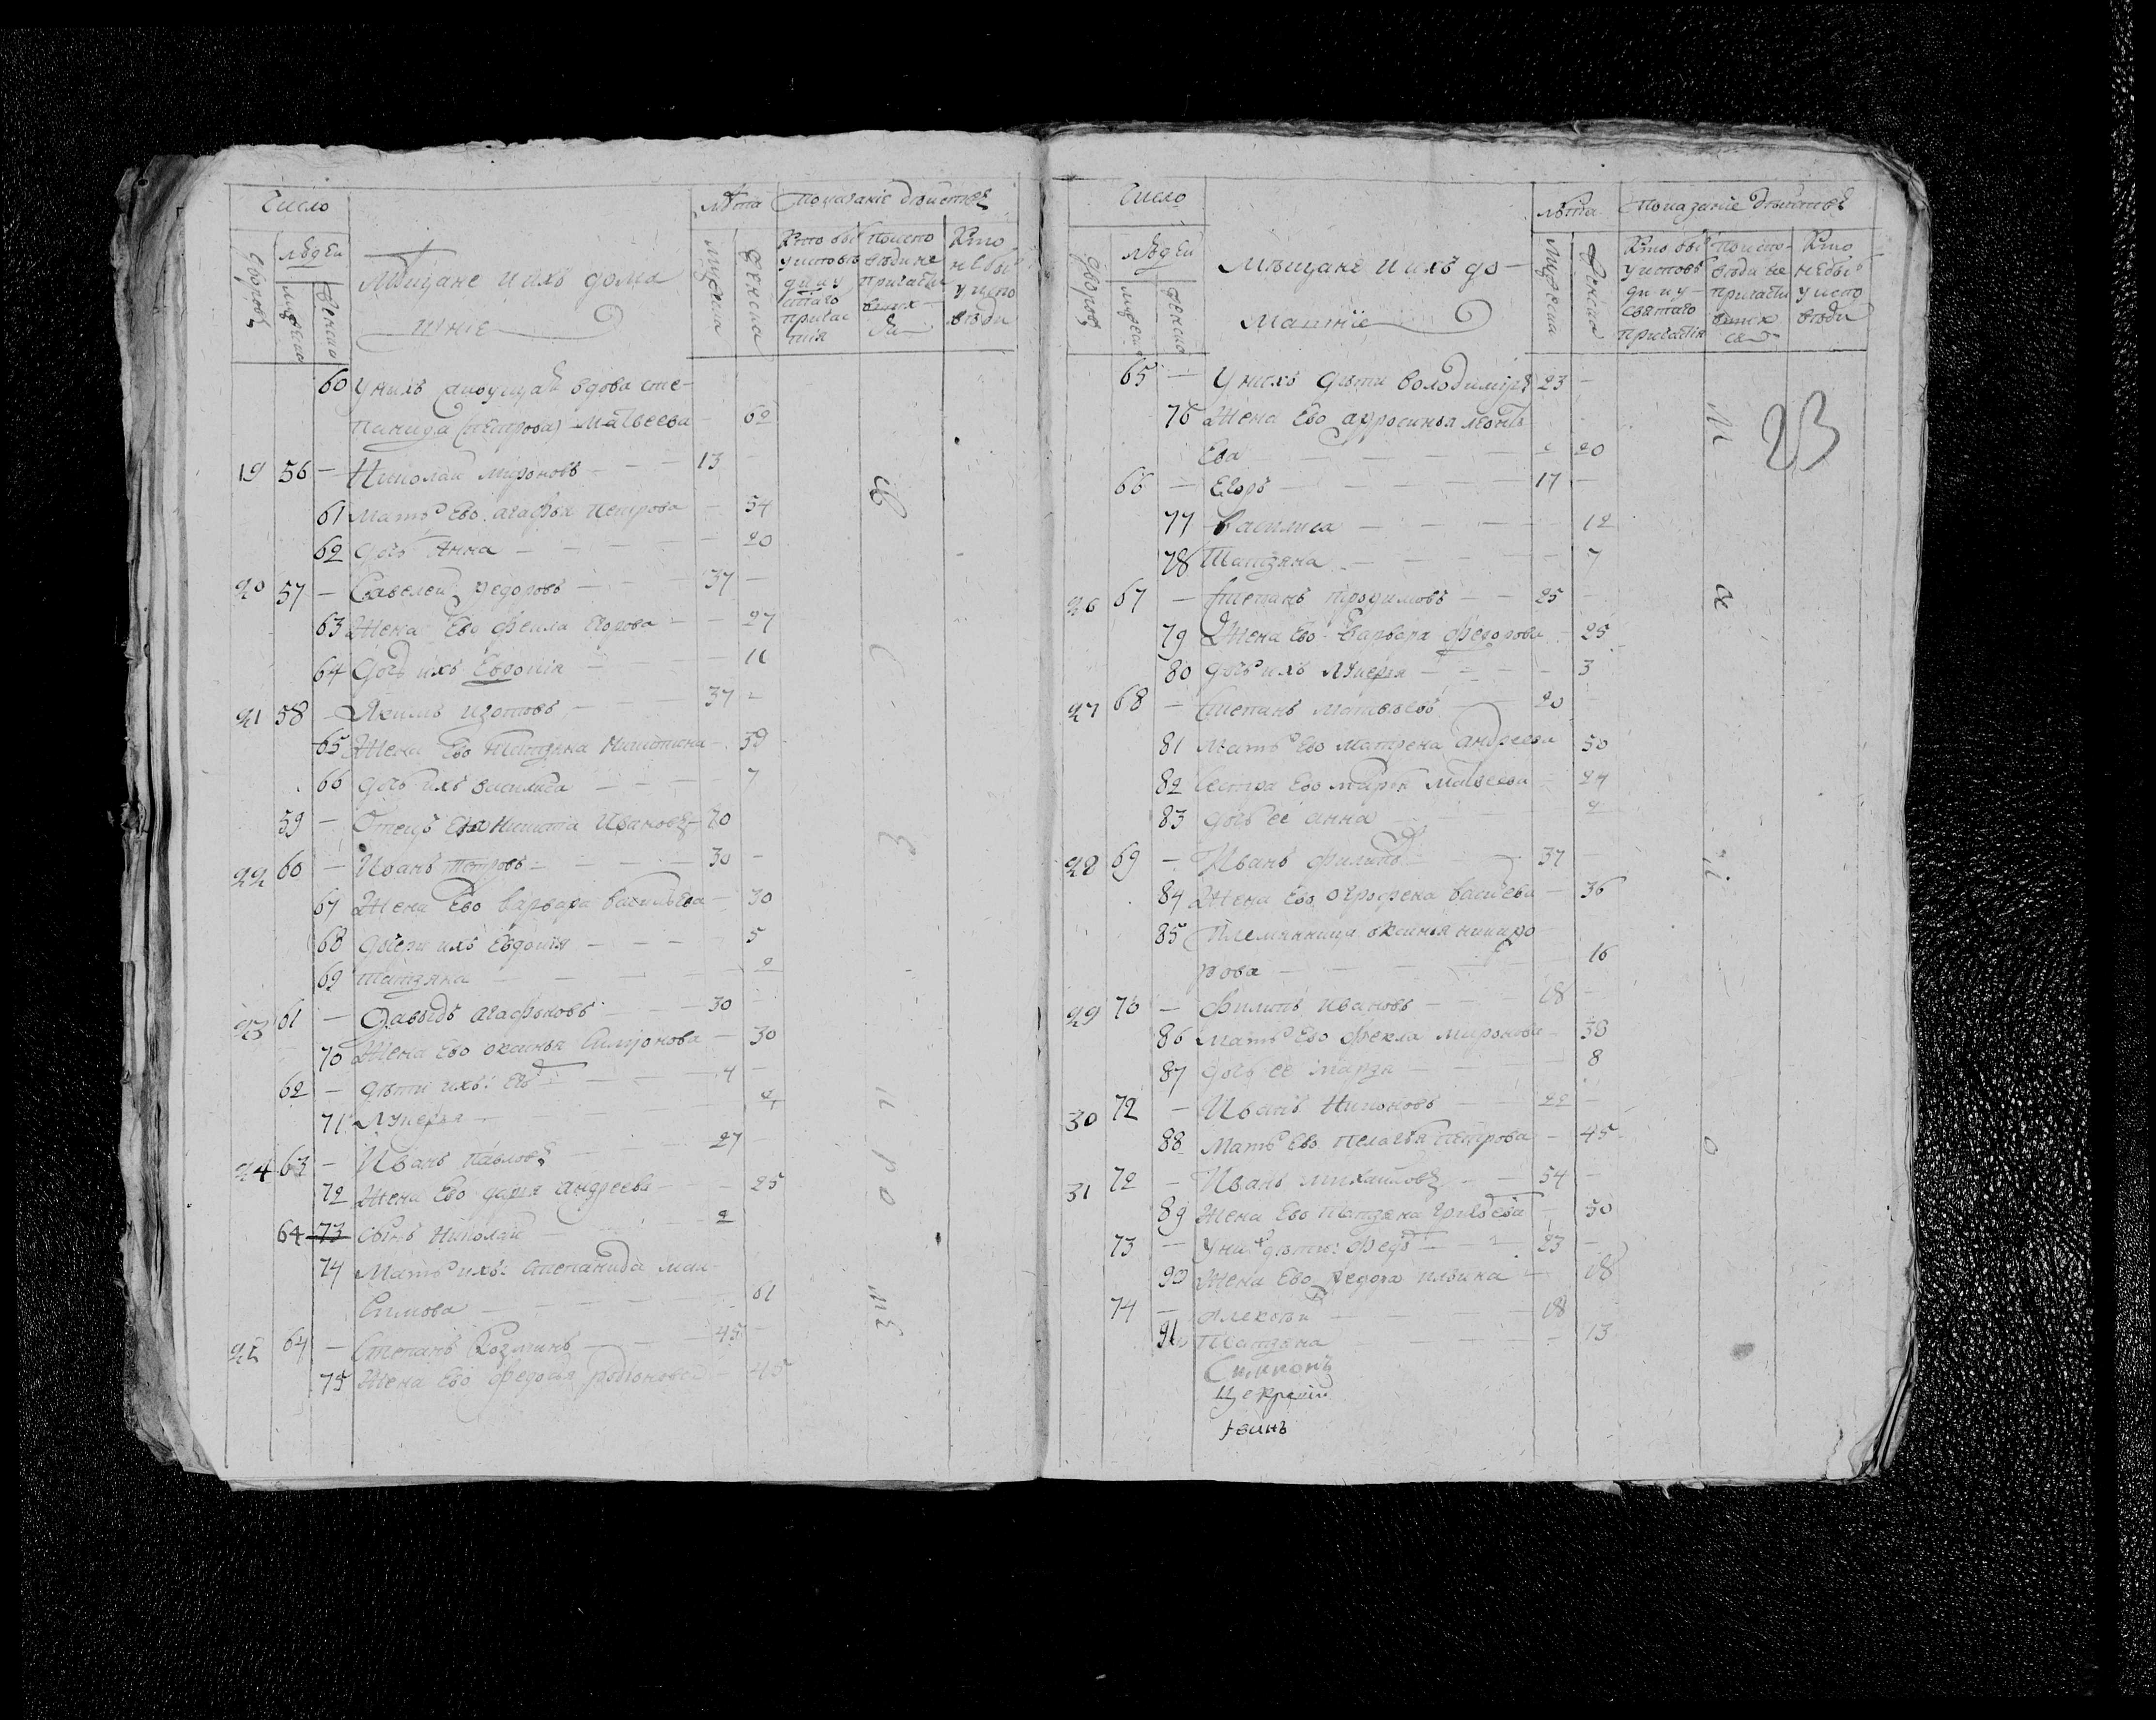 Число
Лѣта Показаніе дѣйствъ
дворовъ
людей
мужеска
женска
Мѣщане и ихъ дома
шніе
мужеска
женска
Кто былъ
у исповѣ
ди и у
святаго
причас
тія
По испо
вѣди не
причасти
вшихся
Кто
не былъ
у испо
вѣди
60 У нихъ живущая вдова сте-
панида (петрова) Матвеева 60
19 56 — Николай Мироновъ — 13 —
61 Мать Ево агафья Петрова — 54
62 дочь Анна — 20
20 57 — Савелей Федоровъ — 37 —
63 Жена Ево Фекла Егорова — 27
64 Дочь ихъ Евдокія — 11
21 58 — Якимъ Изотовъ — 37 —
65 Жена Ево Татьяна Никитина — 39
66 дочь ихъ Василиса — 7
59 — Отецъ Ева Никита Ивановъ — 70
22 60 — Иванъ Петровъ — 30 —
67 Жена Ево Варвара Васильева — 30
68 дочери ихъ Евдокія — 5
69 Татьяна — 2
23 61 — Давыдъ Агафоновъ — 30 —
70 Жена Ево Оксинья Симіонова — 30
62 — дѣти ихъ: — 4 —
71 Лукерья —
24 63 — Иванъ Павловъ — 27 —
72 Жена Ево дарія андреева — 25
64 73 Сынъ Николай — 2
74 Мать ихъ: Степанида мак
симова — 61
64 — Степанъ Козминъ — 45 —
75 Жена Ево Федосья родіонова — 45
В
С
Е
п
р
о
т
Число
лѣта Показаніе дѣйствъ
дворовъ
людей
мужеска
женска
Мѣщане и ихъ до-
машніе
мужеска
женска
Кто былъ
у исповѣ
ди и у
святаго
причастія
По испо-
вѣди не
причасти
вших
ся
Кто
не былъ
у испо
вѣди
65 — У нихъ дѣти Володимиръ 23 —
76 Жена Ево афросинья леонть
Ева — 20
66 — Егоръ — 17 —
77 Василиса — 12
78 Татьяна — 7
26 67 — Степанъ Трофимовъ — 25 —
79 Жена Ево Варвара Федорова — 25
80 дочь ихъ Лукерія — 3
27 68 — Степанъ Матвѣевъ — 20
81 Мать Ево Матрена Андреева 50
82 Сестра Ево марія Матвеева — 24
83 дочь ее анна — 2
28 69 — Иванъ Филиповъ — 37 —
84 Жена Ево огрофена Васильева — 36
85 Племянница оксинья никифо
рова — 16
29 70 — Филипъ Ивановъ — 18 —
86 Мать Ево Фекла Миронова — 38
87 дочь ее Марья — 8
30 72 — Иванъ Никоновъ — 22 —
88 Мать Ево Пелагѣя Петрова — 45
31 72 — Иванъ Михаиловъ — 54 —
89 Жена Ево Татьяна — 50
73 — У них дѣти: Федоръ — 23 —
90 Жена Ево Федора ильина — 18
74 — Алексѣй — 18
91 Татьяна — 13
23
М
а
л
о